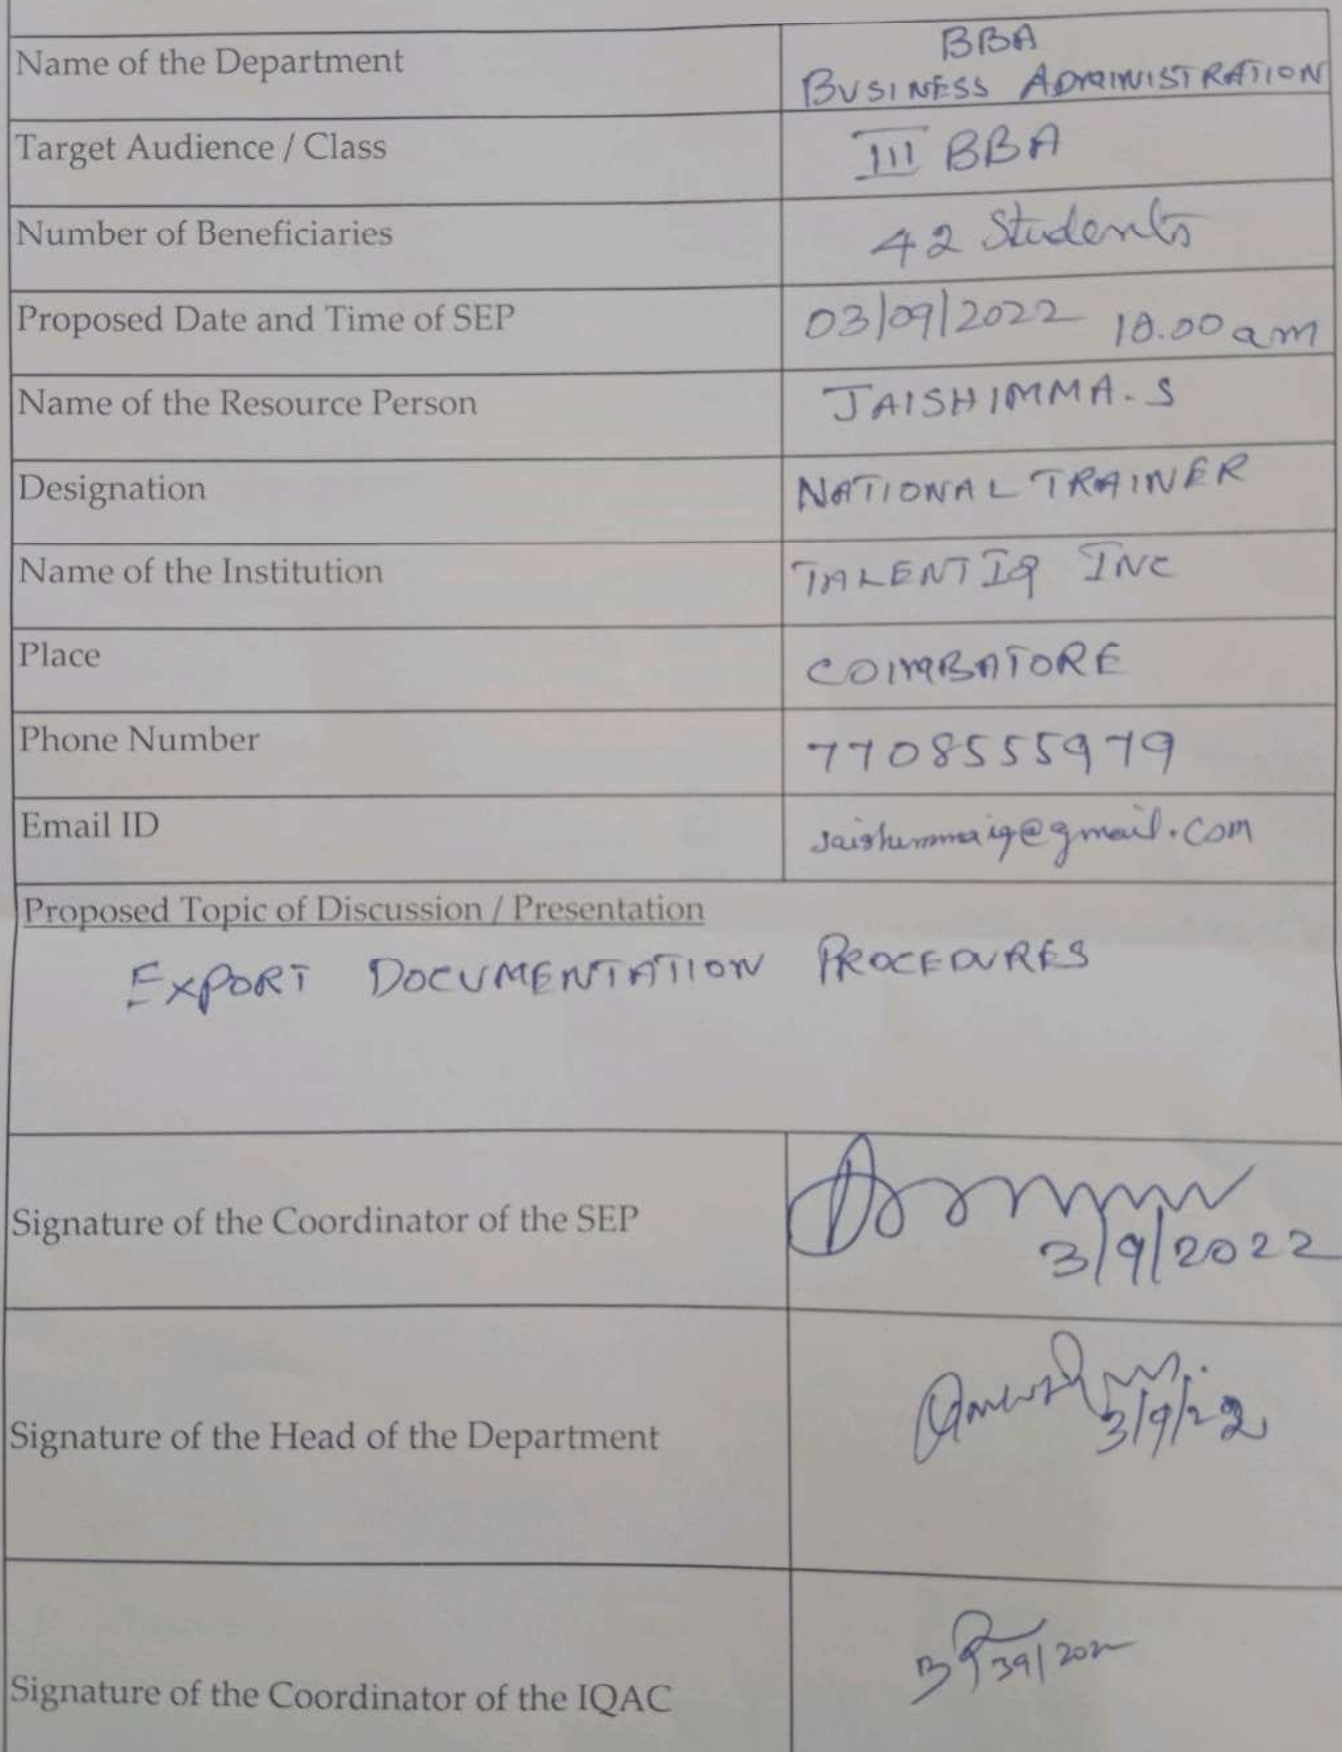 Name of the Department
BBA
BUSINESS ADMINISTRATION
Target Audience / Class
III BBA
Number of Beneficiaries
42 Students
Proposed Date and Time of SEP
03/09/2022 10.00 am
Name of the Resource Person
JAISHIMMA. S
Designation
NATIONAL TRAINER
Name of the Institution
TALENTIQ INC
Place
COIMBATORE
Phone Number
7708555979
Email ID
jaishimmaiq@gmail.com
Proposed Topic of Discussion / Presentation
EXPORT DOCUMENTATION PROCEDURES
Signature of the Coordinator of the SEP
3/9/2022
Signature of the Head of the Department
3/9/22
Signature of the Coordinator of the IQAC